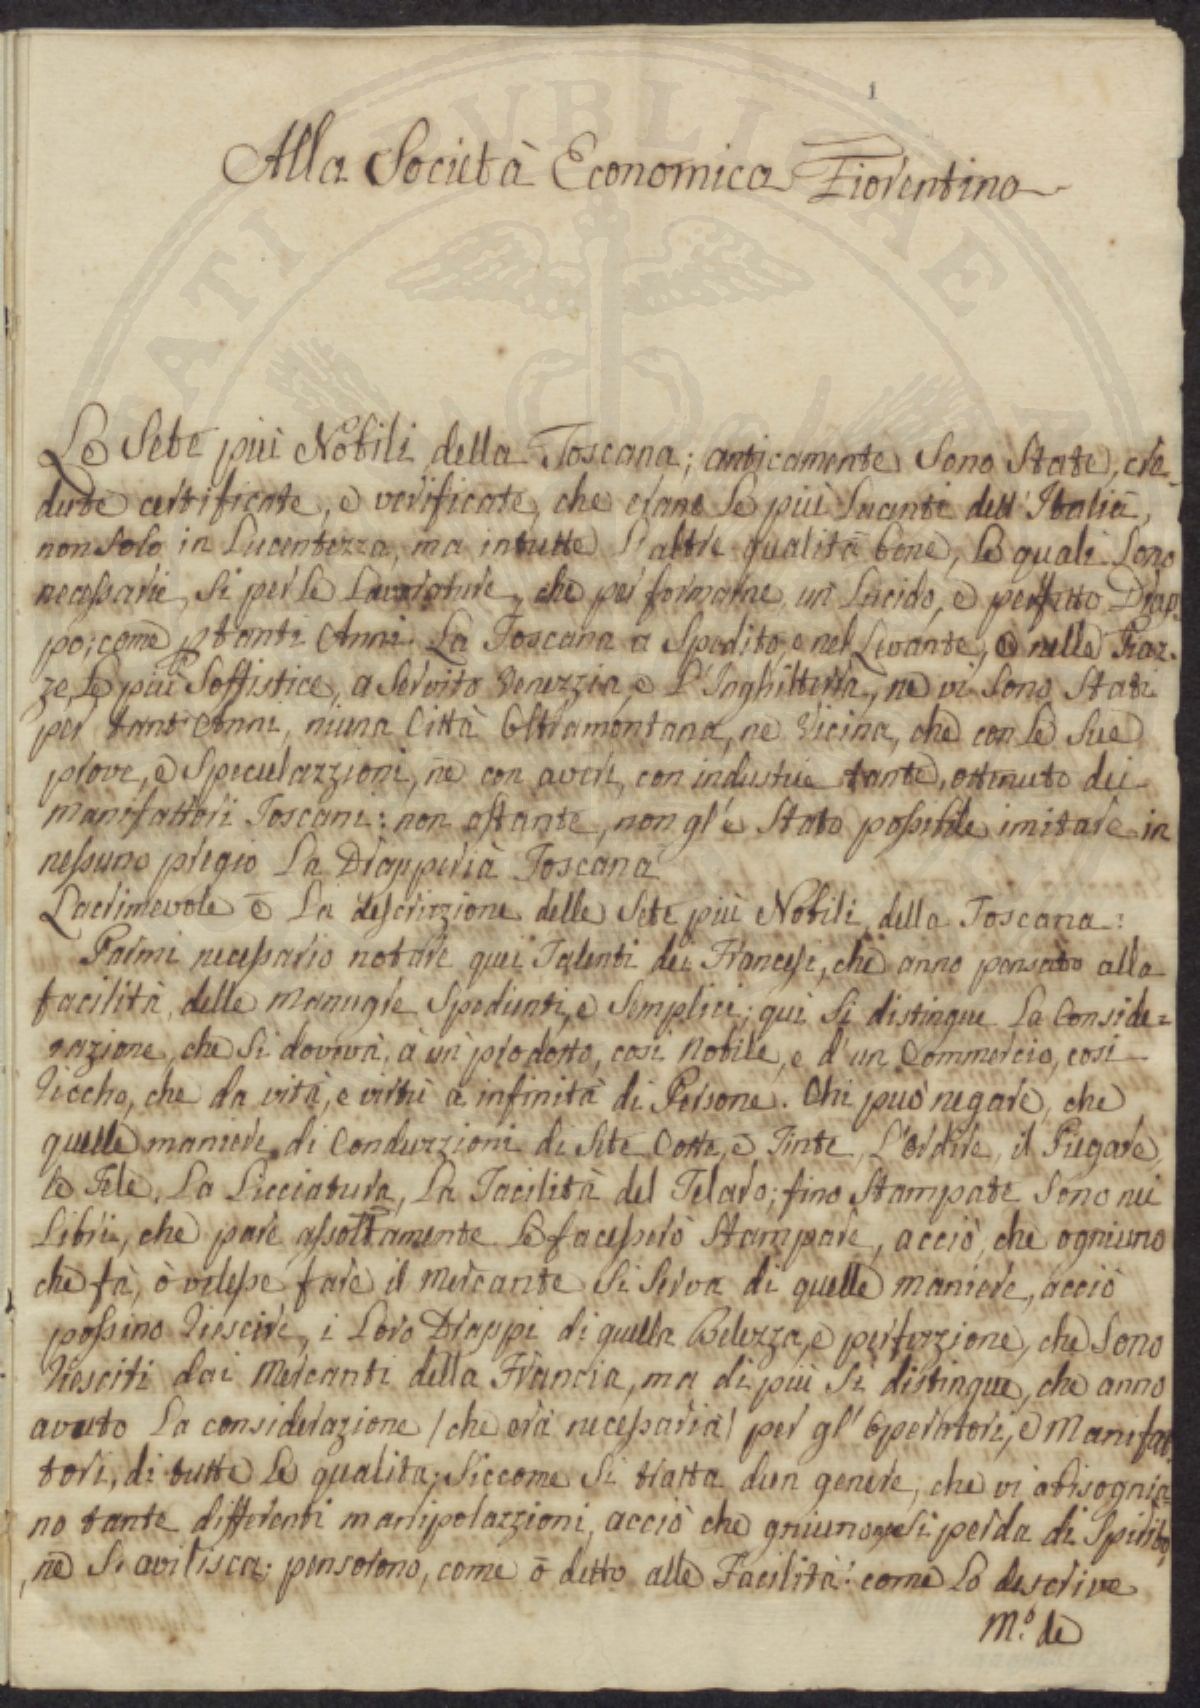 1
Alla Società Economica Fiorentina
Le Sete più Nobili della Toscana; anticamente Sono State, cre-
dute certificate, e verificate, che erano le più Lucenti dell'Italia,
non Solo in Lucentezza, ma in tutte l'altre qualità bone, le quali Sono
necessarie, Si per le Lavorature, che per formarne un Lucido, e perfetto Drap-
po; come p tanti Anni La Toscana a Spedito, e nel Levante, e nelle Piaz-
ze le più Soffistice, a Servito Venezzia, e l'Inghilterra, ne vi Sono Stati
per tant'Anni, niuna Città Oltramontana, ne Vicina, che con le Sue
prove, e Speculazzioni, ne con avere, con industrie tante, ottenuto dei
Manifattori Toscani: non ostante, non gl'è Stato possibile imitare in
nessuno pregio La Drapperia Toscana
Lacrimevole è La descrizzione delle Sete più Nobili della Toscana:
Parmi necessario notare quei Talenti dei Francesi, che anno pensato alla
facilità delle Manugie Spedienti, e Semplici; qui Si distingue La Conside-
razione, che Si doveva, a un prodotto, cosi Nobile, e d'un Commercio, cosi
Riccho, che da vita, e virtù a infinità di Persone. Chi può negare, che
quelle maniere di Conduzzioni di Sete Cotte, e Tinte, L'Ordire, il Piegare,
le Tele, La Licciatura, La Facilità del Telaro; fino Stampate Sono nei
Libri, che pare assoltamente le facessero Stampare, acciò, che ogniuno
che fà, ò volesse fare il Mercante Si Serva di quelle maniere, acciò
possino Riuscire, i Loro Drappi di quella Belezza, e perfezzione, che Sono
Riesciti dai Mercanti della Francia, ma di più Si distingue, che anno
avuto La considerazione (che era necessaria) per gl'Operatori, e Manifat-
tori, di tutte le qualità; Siccome Si tratta d'un genere, che vi abisognia-
no tante differenti manipolazzioni, acciò che gniuno Si perda di Spirito,
ne S'avilisca; pensorono, come ò detto alle Facilità: come Lo descrive
M.º de